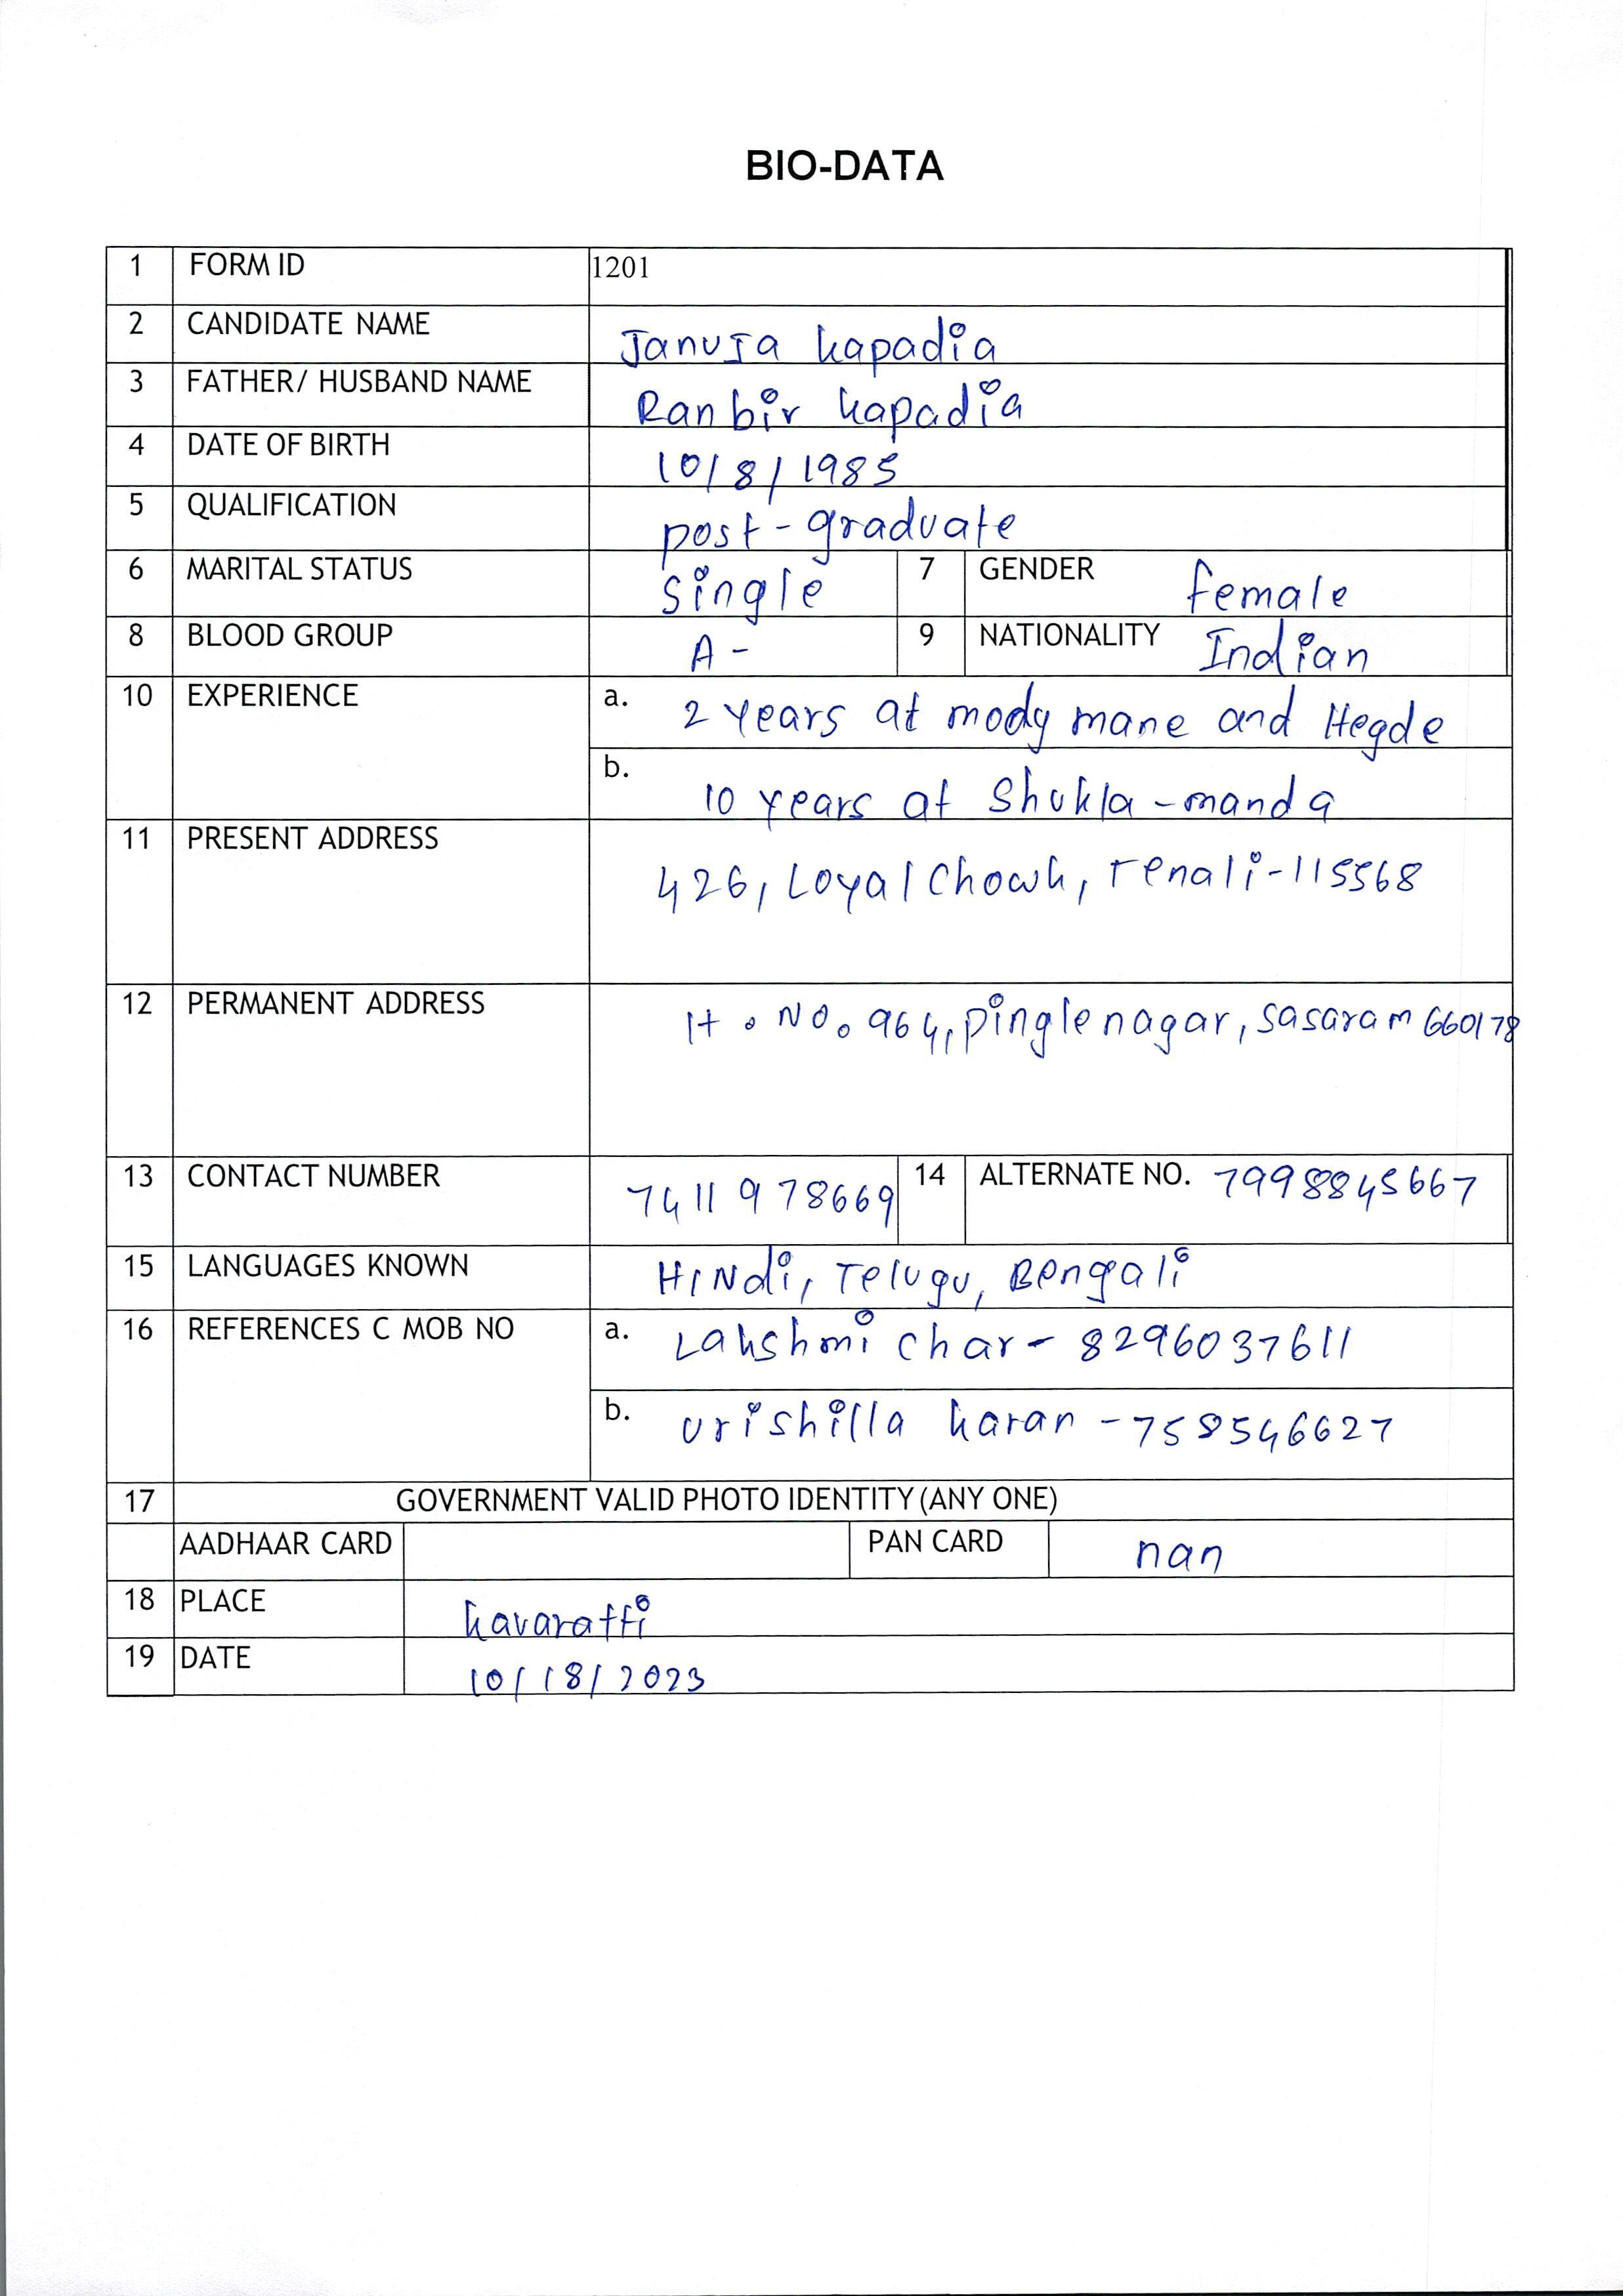 BIO-DATA
1 FORM ID 1201
2 CANDIDATE NAME JanuJa kapadia
3 FATHER/ HUSBAND NAME Ranbir kapadia
4 DATE OF BIRTH 10/8/1985
5 QUALIFICATION post-graduate
6 MARITAL STATUS single 7 GENDER female
8 BLOOD GROUP A- 9 NATIONALITY Indian
10 EXPERIENCE a. 2 years at mody mane and Hegde
b. 10 years at Shukla-manda
11 PRESENT ADDRESS 426, Loyal Chowk, Tenali-115568
12 PERMANENT ADDRESS H.No.964, pingle nagar, sasaram 660178
13 CONTACT NUMBER 7411978669 14 ALTERNATE NO. 7998845667
15 LANGUAGES KNOWN HINdi, Telugu, Bengali
16 REFERENCES C MOB NO a. Lakshmi char- 8296037611
b. urishilla karan -758546627
17 GOVERNMENT VALID PHOTO IDENTITY (ANY ONE)
AADHAAR CARD PAN CARD nan
18 PLACE kavaratti
19 DATE 10/18/2023